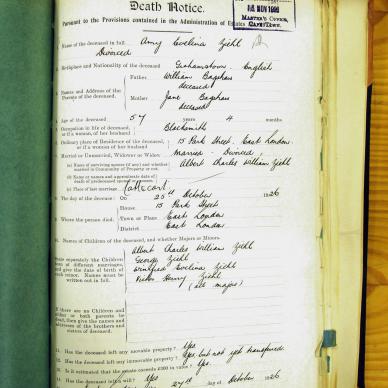 Death Notice.
Pursuant to the Provisions contained in the Administration of Estates
NOV 1926
MASTER'S OFFICE,
CAPE TOWN
Name of the deceased in full Amy Evelina Ziehl
Divorced
Birthplace and Nationality of the deceased Grahamstown. English
Names and Address of the Parents of the deceased. Father William Bagshaw
deceased
Mother Jane Bagshaw
deceased
Age of the deceased 57 years 4 months
Occupation in life of deceased, or if a woman, of her husband Blacksmith
Ordinary place of Residence of the deceased, or if a woman of her husband 15 Park Street. East London.
Married or Unmarried, Widower or Widow married - Divorced
(a) Name of surviving spouse (if any) and whether married in Community of Property or not. Albert Charles William Ziehl
(b) Name or names and approximate date of death of predeceased spouse
(c) Place of last marriage Cathcart
The day of the decease: On 25th October 1926
Where the person died. House 15 Park Street
Town or Place East London
District East London
10. Names of Children of the deceased, and whether Majors or Minors.
State separately the Children born of different marriages, and give the date of birth of each minor. Names must be written out in full.
Albert Charles William Ziehl
George Ziehl
Winifred Evelina Ziehl
Victor Henry Ziehl
(all majors)
If there are no Children and either or both parents be dead, then give the names and addresses of the brothers and sisters of deceased.
11. Has the deceased left any movable property? Yes
12. Has the deceased left any immovable property? Yes, but not yet transferred.
13. Is it estimated that the estate exceeds £300 in value? Yes.
14. Has the deceased left a will? Yes
27th day of October 1926